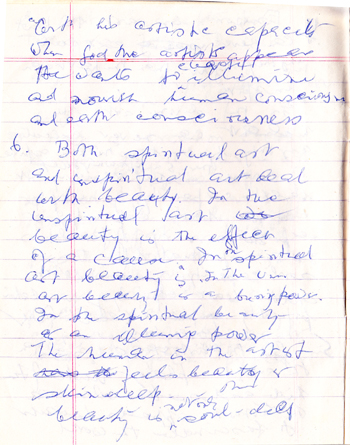 his artistic capacity
When God the artist appears
He wants to illumine
and nourish human consciousness
and earth consciousness
6. Both spiritual art
and unspiritual art deal
with beauty. In the
unspiritual art
beauty is the effect
of a cause. In spiritual
art beauty is. In the un
art beauty is a power.
In the spiritual beauty
is an illuming power
The human in the artist
feels beauty is
skin-deep.
beauty is not only soul-deep